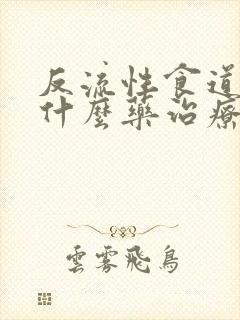 反流性食道
什麼藥治療
雲霧飛鳥